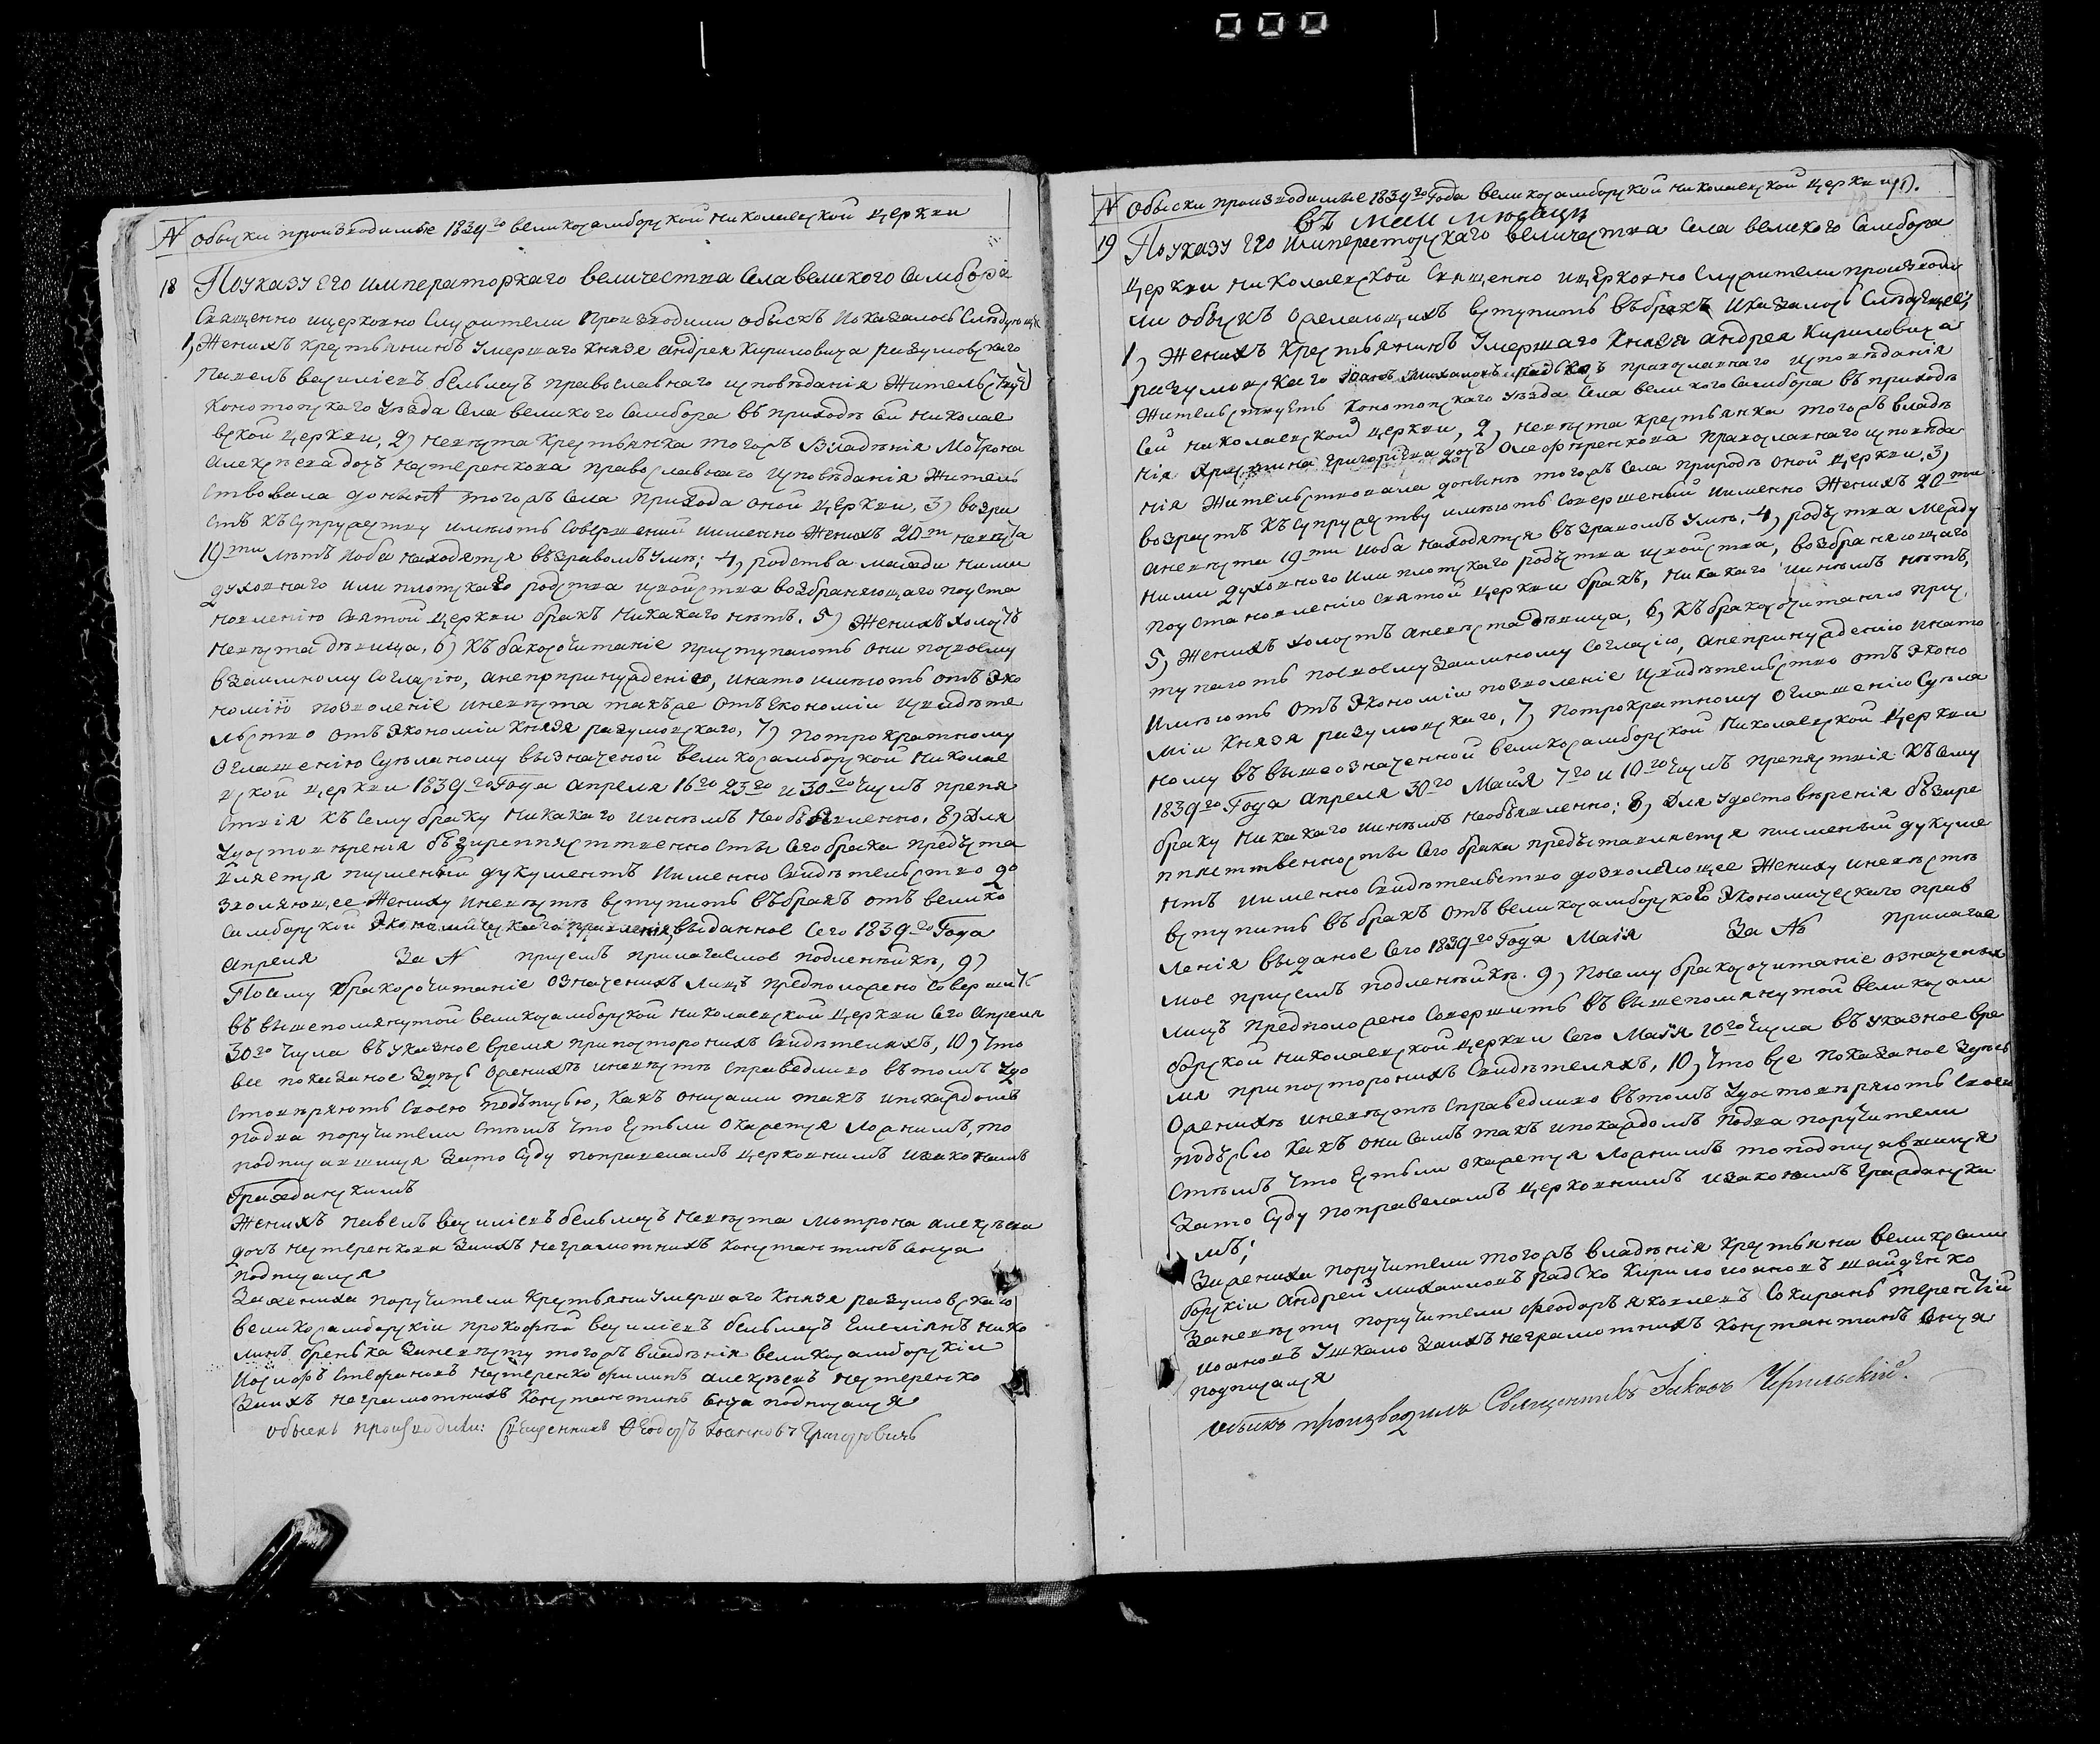 000
N Обыски произходимые 1839го великосамборской николаевской церкви
18 Поуказу Его императорскаго величества Села великого Самбора
Священно ицерковно Служители Произходили обыскъ Показалось Слѣдующее
1, Женихъ крестьянинъ Умершаго Князя андрея Кириловича разумовскаго
павелъ василіевъ бельмецъ православнаго исповѣданія Жительствуетъ
Конотопскаго Уѣзда Села великого Самбора въ приходѣ ей николае
вской церкви, 2) невѣста крестьянка тогожъ Владѣнія Мотрона
алексѣева дочъ нестеренкова православнаго исповѣданія Житель
ствовала донынѣ тогожъ Села прихода оной церкви, 3) возра
стъ къ супружеству имѣютъ совершений иименно Женихъ 20ти невѣста
19ти лѣтъ иоба находятся въздравомъ умѣ; 4, родства между ними
духовнаго или плотскаго родства исвойства возбраняющаго поуста
новленію святой церкви бракъ никакаго нѣтъ. 5) Женихъ холостъ
невѣста дѣвица, 6) къ бракосочитаніе приступаютъ они посвоему
взаимному согласію, анепринужденію, инато имѣютъ отъ эко
номіи позволеніе иневѣста такъже отъ Економіи исвидѣте
льство отъ экономіи Князя разумовскаго, 7) потрократному
оглашенію Сдѣланому вызначеной великосамборской николае
вской церкви 1839го Года апреля 16го 23го и 30го числъ препя
ствія къ сему браку никакаго иникѣмъ необъявленно. 8) Для
удостовѣренія безпрепятственности сего брака предъста
вляется писменый дукументъ иименно Свидѣтельство до
зволяющее Жениху иневѣстѣ вступить въбракъ отъ велико
самборской Экономическаго правленія, выданное Сего 1839го Года
апреля За N присемъ прилагаемое подленникѣ, 9)
Посему бракосочитаніе означенихъ лицъ предположено совершить
въ вышепомянутой великосамборской николаевской церкви сего апреля
30го числа въ указное время при посторонихъ свидѣтеляхъ, 10) что
все показаное здѣсь оженихѣ иневѣстѣ справедливо вътомъ удо
стовѣряютъ своею подъписью, какъ онисами такъ ипокаждомъ
подва поручители стѣмъ что естьли окажется ложнимъ, то
подписавшися зато суду поправеламъ церковнимъ изаконамъ
Гражданскимъ
Женихъ павелъ василіевъ бельмецъ невѣста мотрона алексѣева
дочъ нестеренкова Заихъ неграмотнихъ константинъ
подписался
Зажениха поручители крестьяни умершаго князя разумовскаго
великосамборскіи прокофій василіевъ бельмецъ Емеліянъ нико
лаевъ Заневѣсту тогожъ владѣнія великосамборскіи
иосифъ стефановъ нестеренко филипъ алексѣевъ нестеренко
Заихъ неграмотнихъ Константинъ подписался
обыскъ произходили: Священникъ Феодоръ Іоанновъ Григоровичъ
N Обыски произходимые 1839го Года великосамборской николаевской церкви
въ маи мѣсяцѣ
19 Поуказу Его императорскаго величества Села великого Самбора
церкви николаевской Священно ицерковно Служители произходи
ли обыскъ ожелающихъ вступить въбракъ Иказалось Слѣдующее;
1) Женихъ Крестьянинъ Умершаго Князя андрея Кириловича
разумовскаго Іоанъ Михаиловъ радько православнаго исповѣданія
Жительствуетъ Конотопскаго Уѣзда Села великого самбора въ приходѣ
Сей николаевской церкви, 2, невѣста крестьянка тогожъ владѣ
нія Христина григоріева дочъ православнаго исповѣда
нія Жительствовала донынѣ тогожъ Села приходѣ оной церкви. 3)
возрастъ къ супружеству имѣютъ совершеный иименно Женихъ 20ти
аневѣста 19ти иоба находятся въздравомъ умѣ. 4, родъства между
ними духовного или плотскаго родъства исвойства, возбраняющаго
поустановленію святой церкви бракъ, никакаго иникѣмъ нѣтъ,
5, Женихъ холостъ аневѣста дѣвица, 6, къ бракосочитанію прис
тупаютъ посвоему взаимному согласію, анепринужденію инато
имѣютъ отъ экономіи позволеніе исвидѣтельство отъ эконо
міи Князя разумовскаго, 7, Потрократному оглашенію Сдѣла
ному въ вышеозначеной великосамборской николаевской церкви
1839го Года апреля 30го Маія 7го и 10го числъ препяствія къ сему
браку никакаго иникѣмъ необъявленно; 8, Для удостовѣренія безпре
пятственности сего брака предъставляется писменый дукуме
нтъ иименно свидѣтельство дозволяющее Жениху иневѣстѣ
вступить въ бракъ отъ великосамборского экономическаго прав
ленія выданое сего 1839го Года Маія За N прилагае
мое присемъ подленникѣ. 9, Посему бракосочитаніе означеныхъ
лицъ предположено совершить въ вышепомянутой великосам
борской николаевской церкви сего Маія 10го числа въ указное вре
мя при посторонихъ свидѣтеляхъ, 10, что все показаное здѣсь
оженихѣ иневѣстѣ справедливо вътомъ удостовѣряютъ своею
подъсью какъ они самъ такъ ипокаждомъ подва поручители
стѣмъ что естьли окажется ложнимъ то подписавшися
зато суду поправеламъ церковнимъ изаконамъ граждански
мъ;
Зажениха поручители тогожъ владѣнія крестьяни великосам
борскіи андрей михаиловъ радько кирило иоановъ шайденко
Заневѣсту поручители феодоръ яковлевъ Сокирань терентій
иоановъ Ушкало Заихъ неграмотнихъ константинъ
подписался
обыскъ производилъ Священникъ Іаковъ